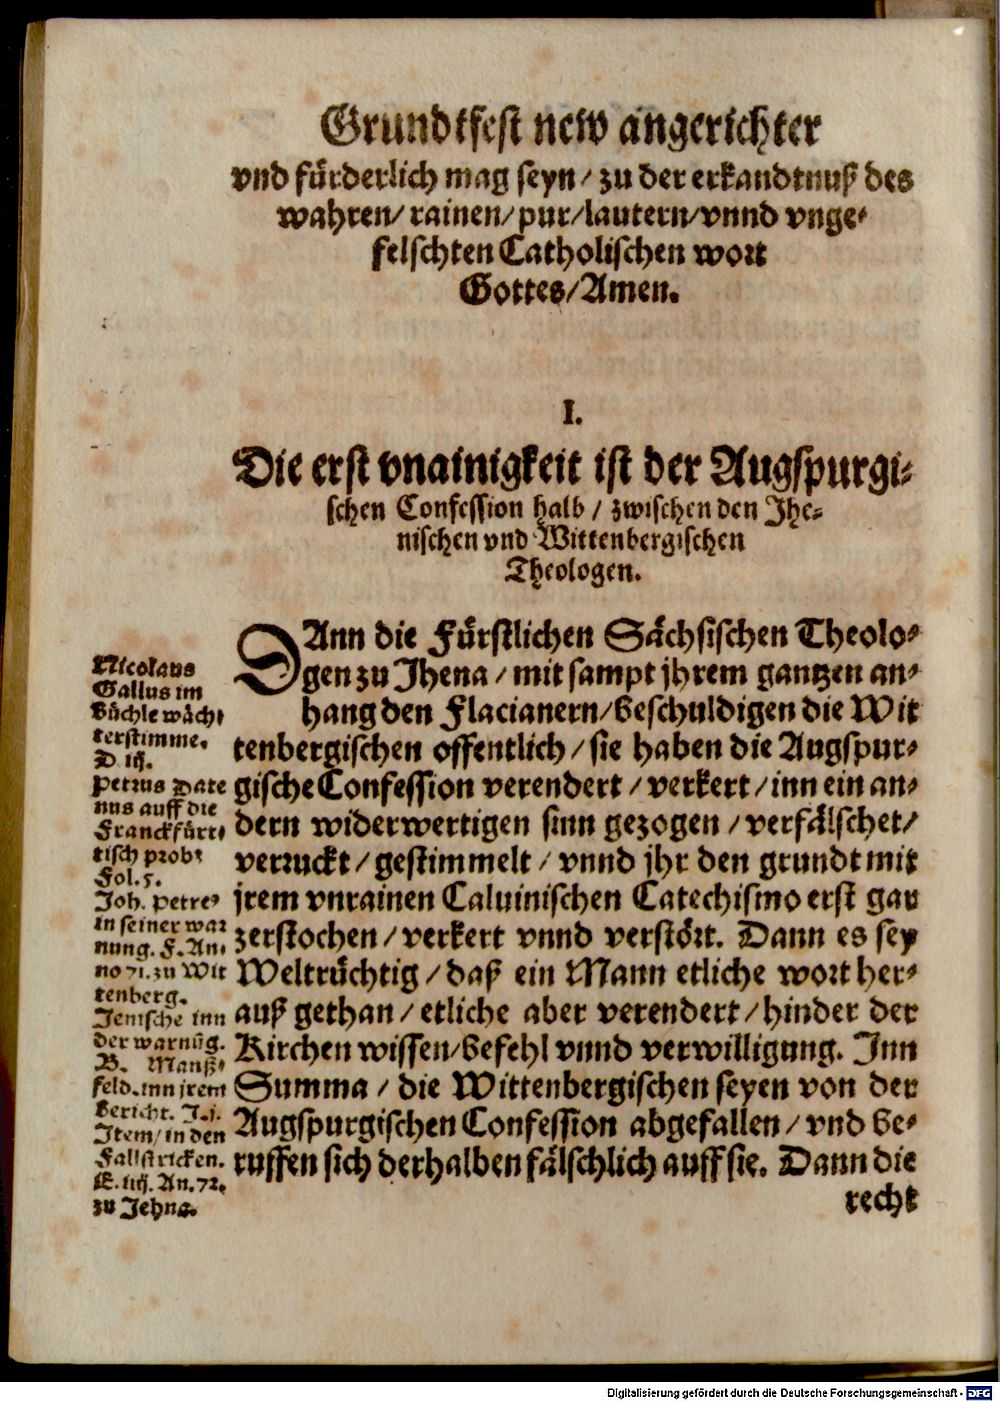 Grundtfest new angerichter
vnd fürderlich mag seyn / zu der erkandtnuß des
wahren / rainen / pur / lautern / vnnd vnge⸗
felschten Catholischen wort
Gottes / Amen.
I.
Die erst vnainigkeit ist der Augspurgi⸗
schen Confession halb / zwischen den Jhe⸗
nischen vnd Wittenbergischen
Theologen.
DAnn die Fürstlichen Sächsischen Theolo⸗
gen zu Jhena / mit sampt jhrem gantzen an⸗
hang den Flacianern / beschuldigen die Wit
tenbergischen offentlich / sie haben die Augspur⸗
gische Confession verendert / verkert / inn ein an⸗
dern widerwertigen sinn gezogen / verfälschet /
verruckt / gestimmelt / vnnd jhr den grundt mit
jrem vnrainen Caluinischen Catechismo erst gar
zerstochen / verkert vnnd verstört. Dann es sey
Weltrüchtig / daß ein Mann etliche wort her⸗
auß gethan / etliche aber verendert / hinder der
Kirchen wissen / befehl vnnd verwilligung. Inn
Summa / die Wittenbergischen seyen von der
Augspurgischen Confession abgefallen / vnd be⸗
ruffen sich derhalben fälschlich auff sie. Dann die
recht
Nicolaus
Gallus im
Büchle wäch⸗
terstimme.
D iij.
Petrus Date
nus auff die
Franckfürt⸗
tisch prob⸗
Fol. 5.
Joh. Petre⸗
in seiner war
nung. F. An⸗
no 71. zu Wit
tenberg.
Jenische inn
der warnūg.
B. Manß⸗
feld. inn jrem
bericht. J. j.
Item / in den
Fallstricken.
E. iiij. An. 72.
zu Jehna.
Digitalisierung gefördert durch die Deutsche Forschungsgemeinschaft - DFG